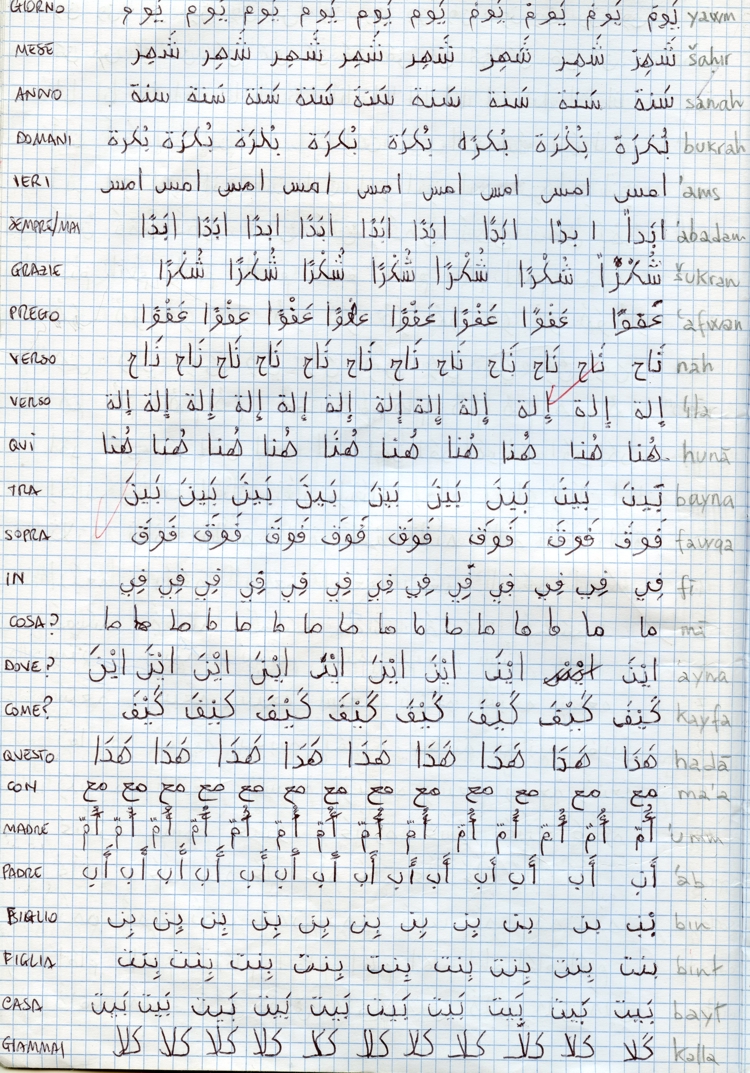 GIORNO يَوم يَوم يَوم يَوم يَوم يَوم يَوم يَوم يَوم يَوم yawm
MESE شَهر شَهر شَهر شَهر شَهر شَهر شَهر شَهر šahr
ANNO سَنة سَنة سَنة سَنة سَنة سَنة سَنة سَنة سَنة sanah
DOMANI بُكرَة بُكرَة بُكرَة بُكرَة بُكرَة بُكرَة بُكرَة بُكرَة bukrah
IERI امس امس امس امس امس امس امس امس امس 'ams
SEMPRE/MAI ابَداً ابَدًا ابَدًا ابَدًا ابَدًا ابَدًا ابَدًا ابَدًا ابَدًا 'abadam
GRAZIE شُكْرًا شُكْرًا شُكْرًا شُكْرًا شُكْرًا شُكْرًا شُكْرًا šukran
PREGO عَفْوًا عَفْوًا عَفْوًا عَفْوًا عَفْوًا عَفْوًا عَفْوًا عَفْوًا 'afwan
VERSO نَاح نَاح نَاح نَاح نَاح نَاح نَاح نَاح نَاح نَاح نَاح nah
VERSO إلة إلة إلة إلة إلة إلة إلة إلة إلة إلة إلة إلة
QUI هُنا هُنا هُنا هُنا هُنا هُنا هُنا هُنا هُنا هُنا hunā
TRA بَينَ بَينَ بَينَ بَينَ بَينَ بَينَ بَينَ بَينَ بَينَ bayna
SOPRA فَوقَ فَوقَ فَوقَ فَوقَ فَوقَ فَوقَ فَوقَ فَوقَ fawqa
IN فِي فِي فِي فِي فِي فِي فِي فِي فِي فِي فِي فِي فِي fī
COSA? ما ما ما ما ما ما ما ما ما ما ما ما ما ما ما ما mā
DOVE? ايْنَ ايْنَ ايْنَ ايْنَ ايْنَ ايْنَ ايْنَ ايْنَ ايْنَ 'ayna
COME? كَيْفَ كَيْفَ كَيْفَ كَيْفَ كَيْفَ كَيْفَ كَيْفَ كَيْفَ kayfa
QUESTO هَذَا هَذَا هَذَا هَذَا هَذَا هَذَا هَذَا هَذَا هَذَا hadā
CON مع مع مع مع مع مع مع مع مع مع مع مع مع ma'a
MADRE أُمّ أُمّ أُمّ أُمّ أُمّ أُمّ أُمّ أُمّ أُمّ أُمّ أُمّ أُمّ أُمّ أُمّ 'umm
PADRE أَب أَب أَب أَب أَب أَب أَب أَب أَب أَب أَب أَب أَب أَب 'ab
BIGLIO بِن بِن بِن بِن بِن بِن بِن بِن بِن بِن بِن bin
FIGLIA بِنت بِنت بِنت بِنت بِنت بِنت بِنت بِنت بِنت bint
CASA بَيت بَيت بَيت بَيت بَيت بَيت بَيت بَيت بَيت بَيت bayt
GIAMMAI كَلا كَلا كَلا كَلا كَلا كَلا كَلا كَلا كَلا كَلا كَلا kalla